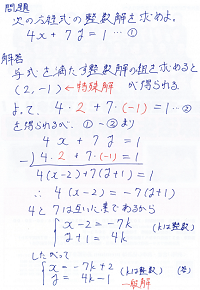 問題
次の方程式の整数解を求めよ。
4x + 7y = 1 … ①
解答
与式を満たす整数解の組を求めると
(2, -1) ← 特殊解 が得られる
よって、4・2 + 7・(-1) = 1 … ②
を得られるべ。①-②より
4x + 7y = 1
-) 4・2 + 7・(-1) = 1
4(x-2) + 7(y+1) = 0
∴ 4(x-2) = -7(y+1)
4と7は互いに素であるから
{ x-2 = -7k
y+1 = 4k (kは整数)
したがって
{ x = -7k+2
y = 4k-1 (kは整数) (答)
一般解